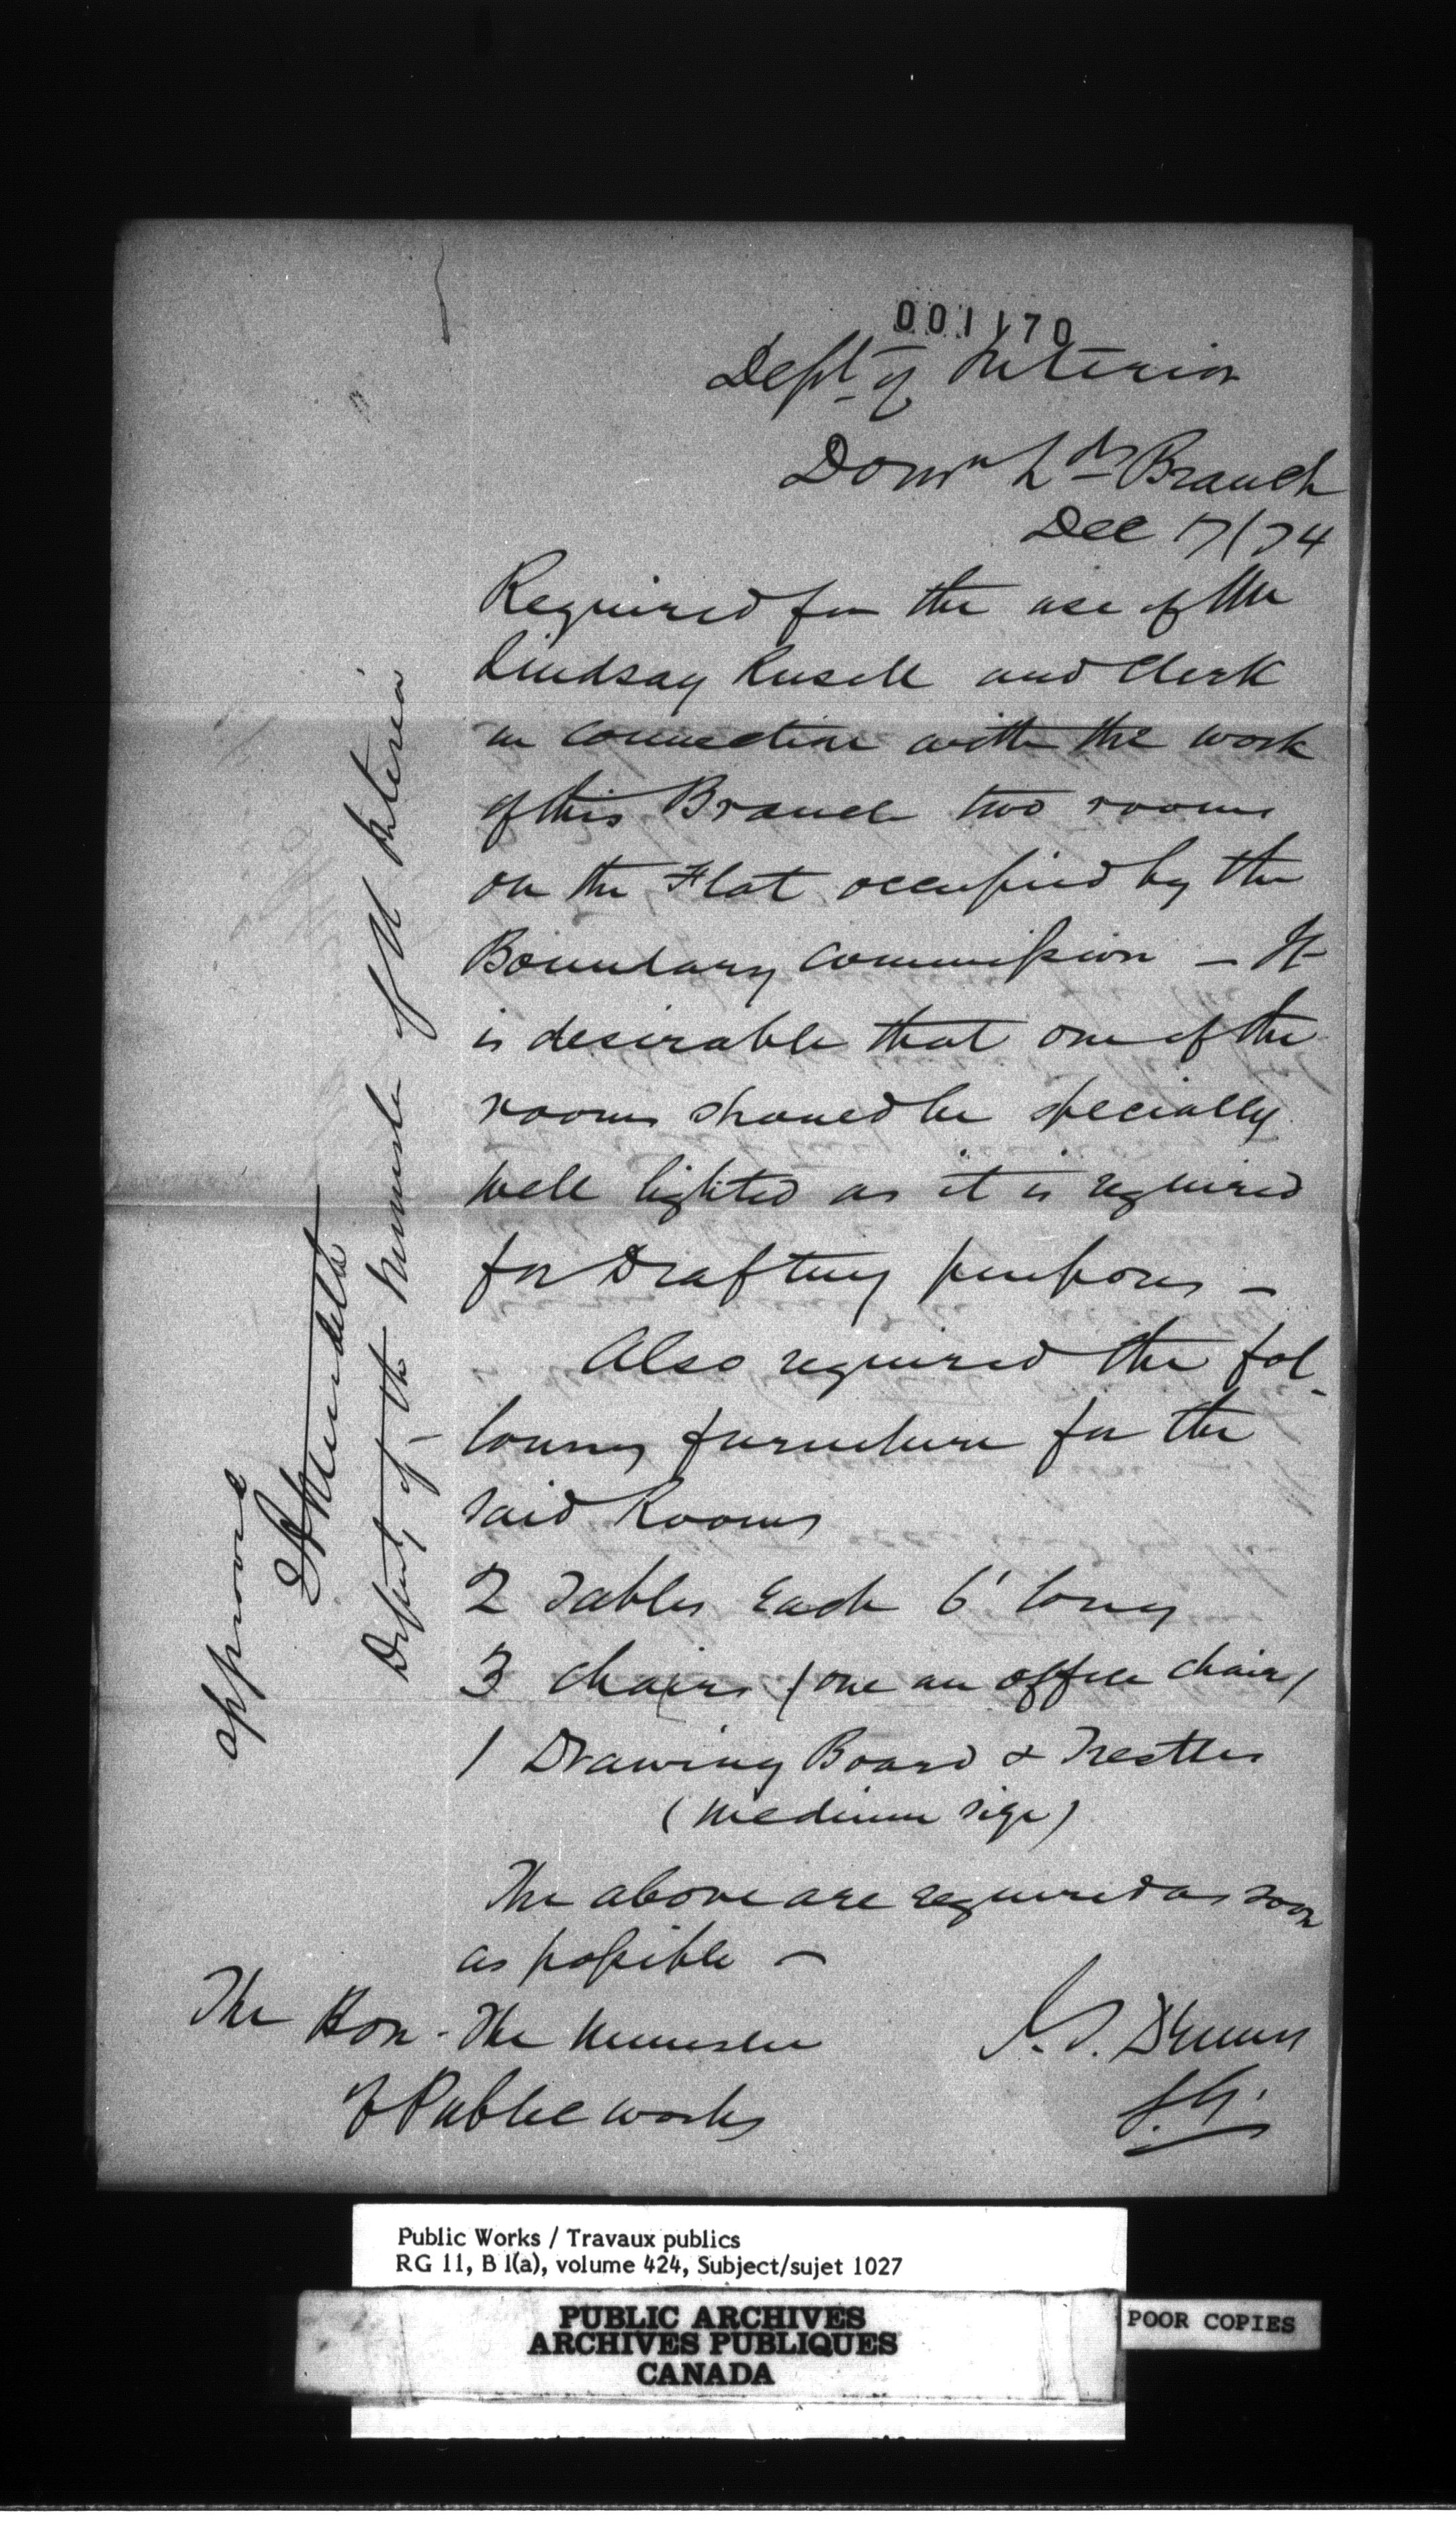 001170
Dept of Interior
Domn Lds Branch
Dec 17/74
Required for the use of Mr
Lindsay Rusell and Clerk
in connection with the work
of this Branch two rooms
on the Flat occupied by the
Boundary Commission — It
is desirable that one of the
rooms should be specially
well lighted as it is required
for Drafting purposes —
Also required the fol-
lowing furniture for the
said Rooms
2 Tables Each 6' long
3 chairs (one an office chair)
1 Drawing Board & Trestles
(Medium size)
The above are required as soon
as possible —
J.S. Dennis
S.G.
The Hon. The Minister
of Public Works
approved
Deputy of the Minister of the Interior
Public Works / Travaux publics
RG 11, B 1(a), volume 424, Subject/sujet 1027
PUBLIC ARCHIVES
ARCHIVES PUBLIQUES
CANADA
POOR COPIES